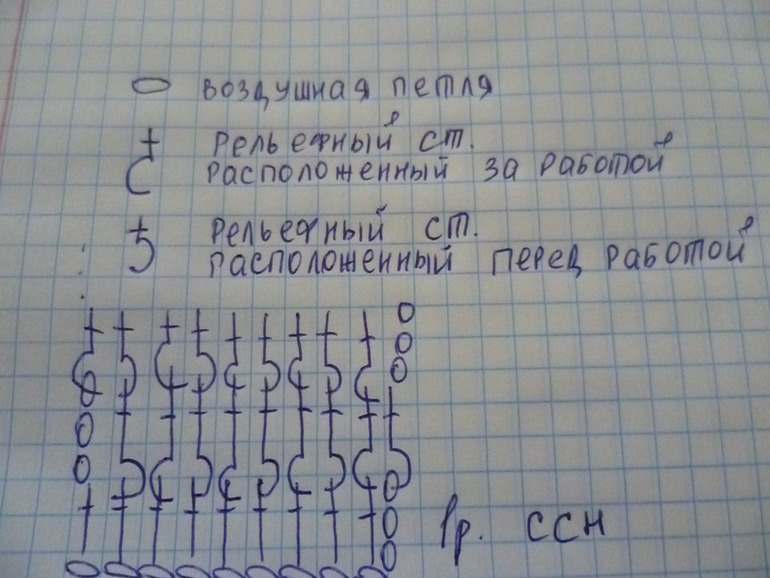 воздушная петля
рельефный ст.
расположенный за работой
рельефный ст.
расположенный перед работой
1р. ССН